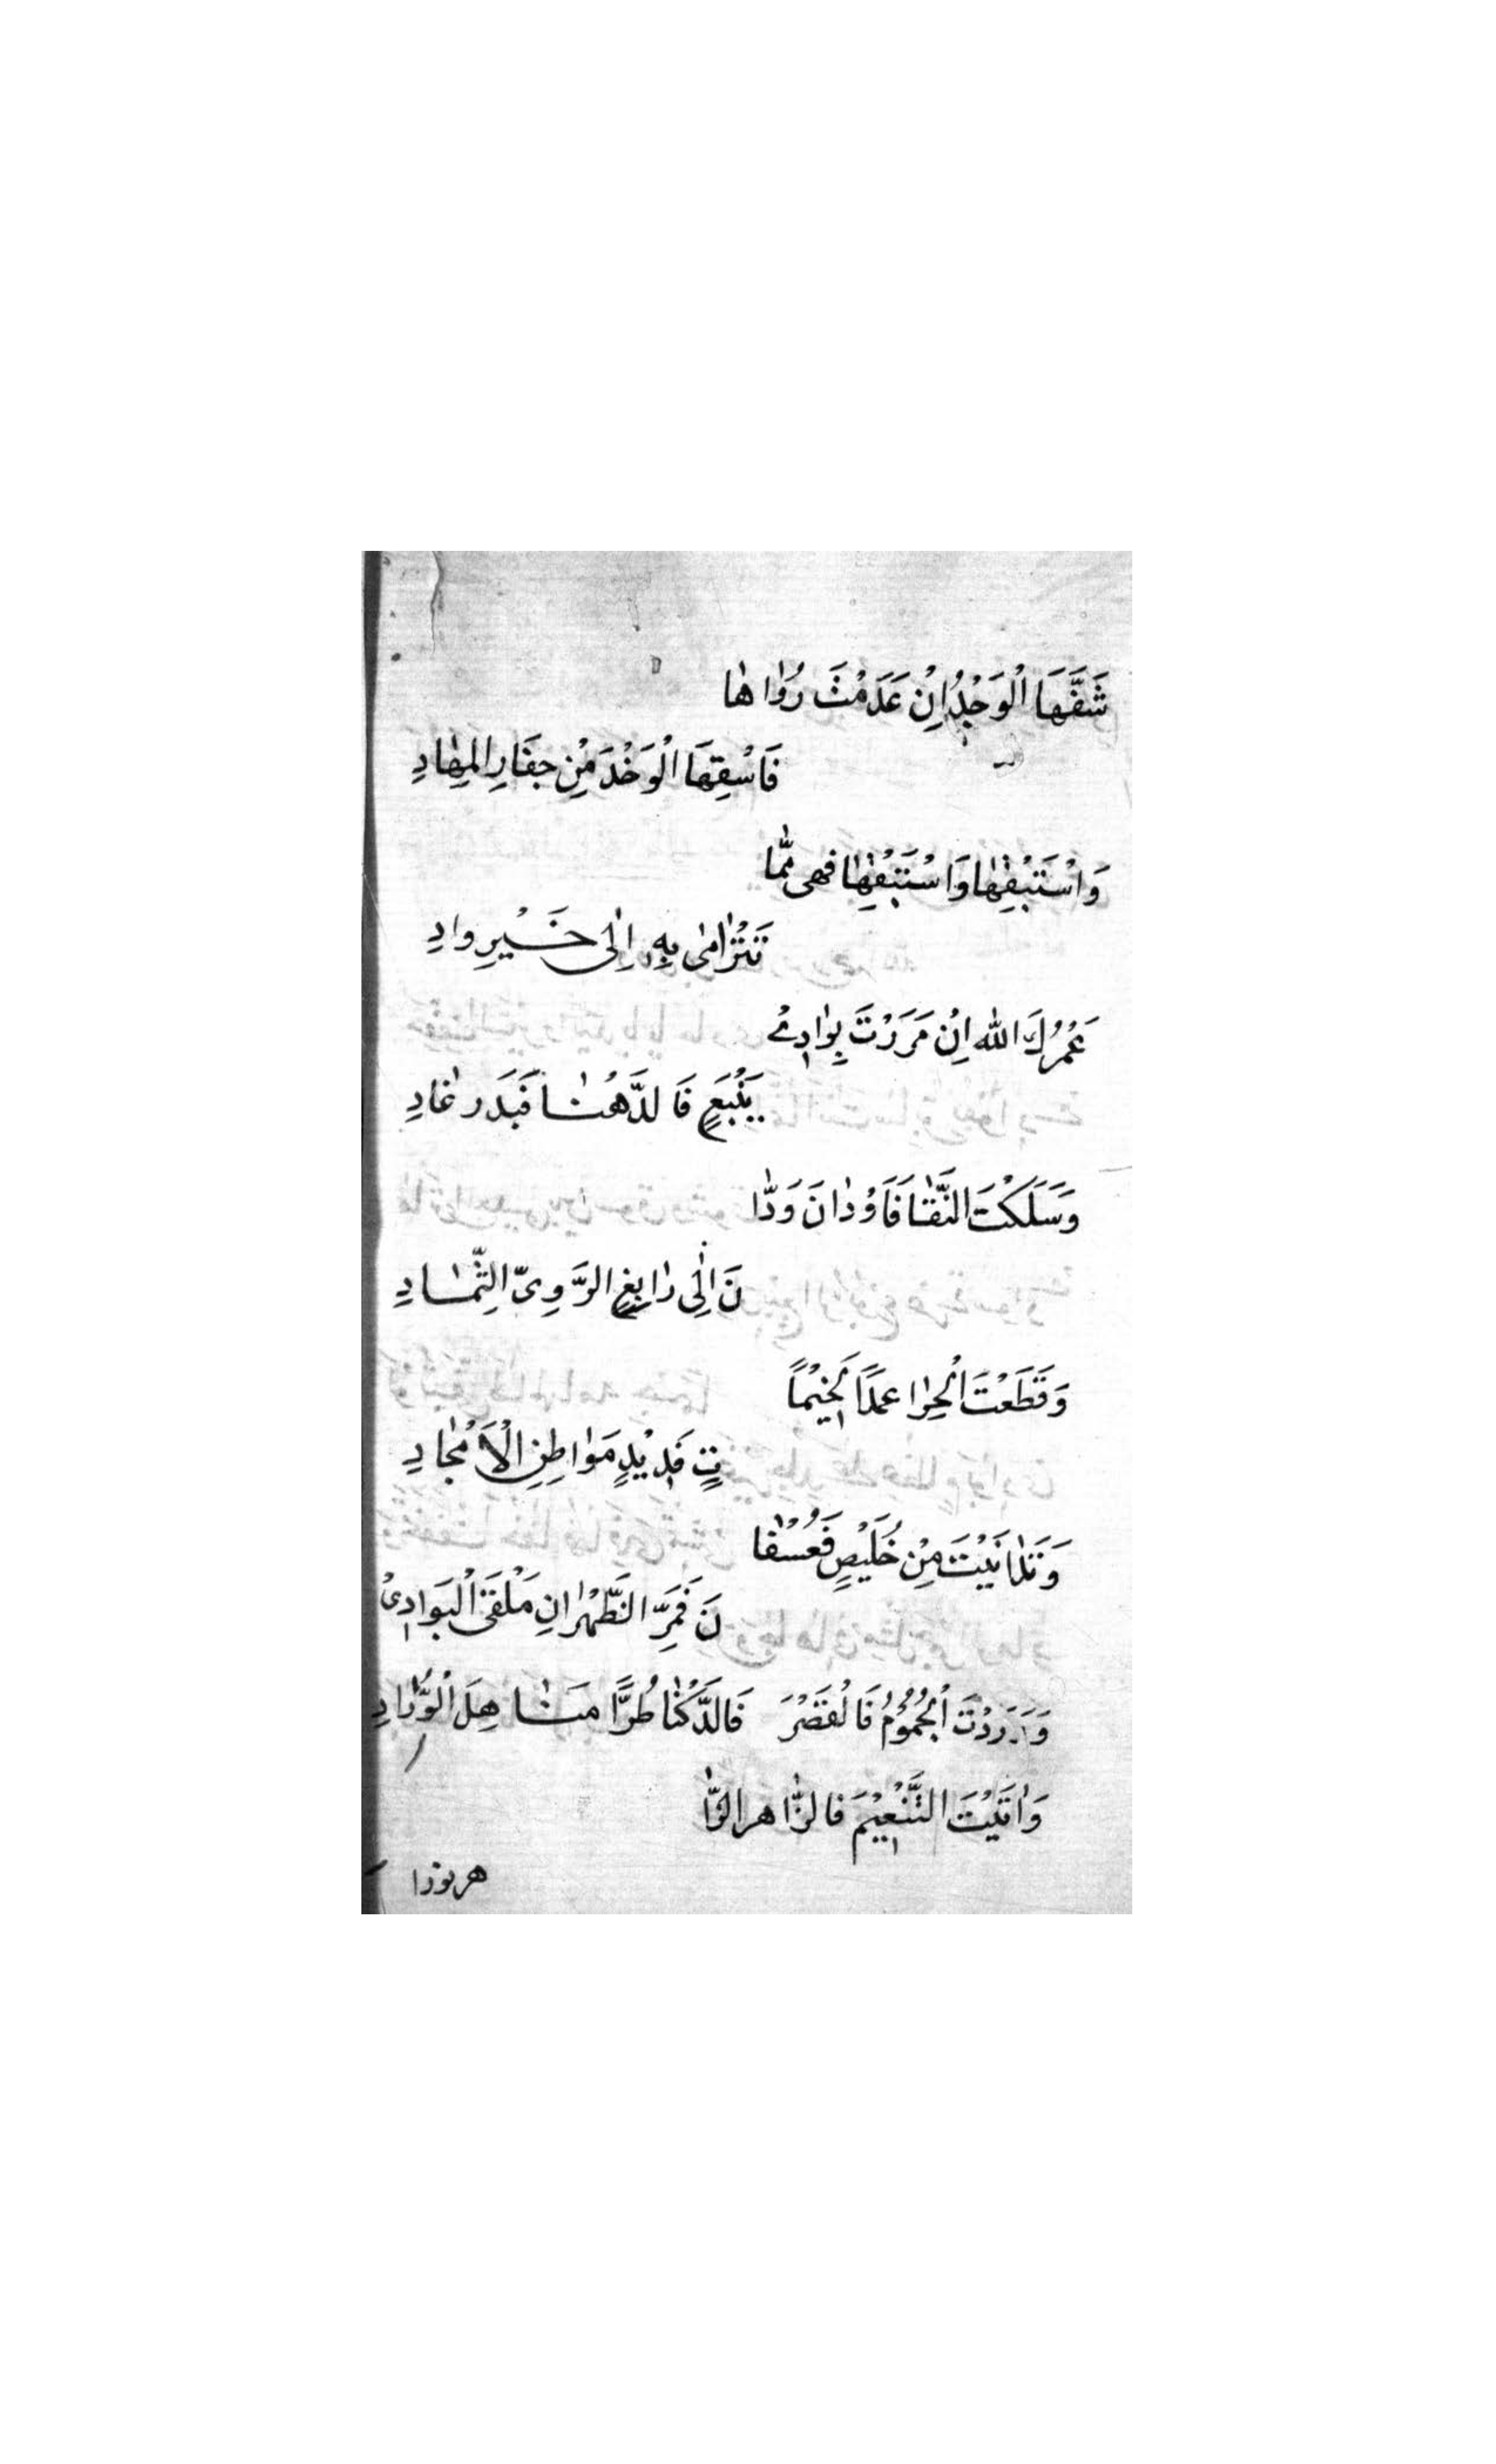 شَفَّهَا الْوَجْدُ اِنْ عَدَمْتَ رُوٰاهٰا
فَاسْقِهَا الْوَخْدَ مِنْ جِفَارِ الْمِهٰادِ
وَاسْتَبْقِهٰا وَاسْتَبْقِهٰا فهى مِمّٰا
تَتَرٰامٰى بِهِ اِلٰى خَيْرِ وادِ
عَمْرُكَ الله اِنْ مَرَرْتَ بِوٰادِىْ
يَنْبُعٍ فَالدَّهْنٰا فَبَدَر غٰادِ
وَسَلَكْتَ النَّقٰا فَاَوْدٰانَ وَدّٰا
نَ اِلٰى رٰابِغِ الرَّوِىّ الثِّمٰادِ
وَقَطَعْتَ الْحِرٰا عمدًا لِخَيْمًا
تٍ قَدِيْدٍ مَوٰاطِنِ الْاَمْجٰادِ
وَتَدٰانَيْتَ مِنْ خُلَيْصٍ فَعُسْفٰا
نَ فَمَرِّ الظَّهْرٰانِ مَلْقَى الْبَوَادِىْ
وَوَرَدْتَ الْجُمُوْمُ فَالْقَصْرَ فَالدَّكْنٰا طُرًّا مَنٰاهِلَ الْوُرّٰادِ
وَاٰتَيْتَ التَّنْعِيْمَ فالزّٰاهر الزّٰا
هر نورا